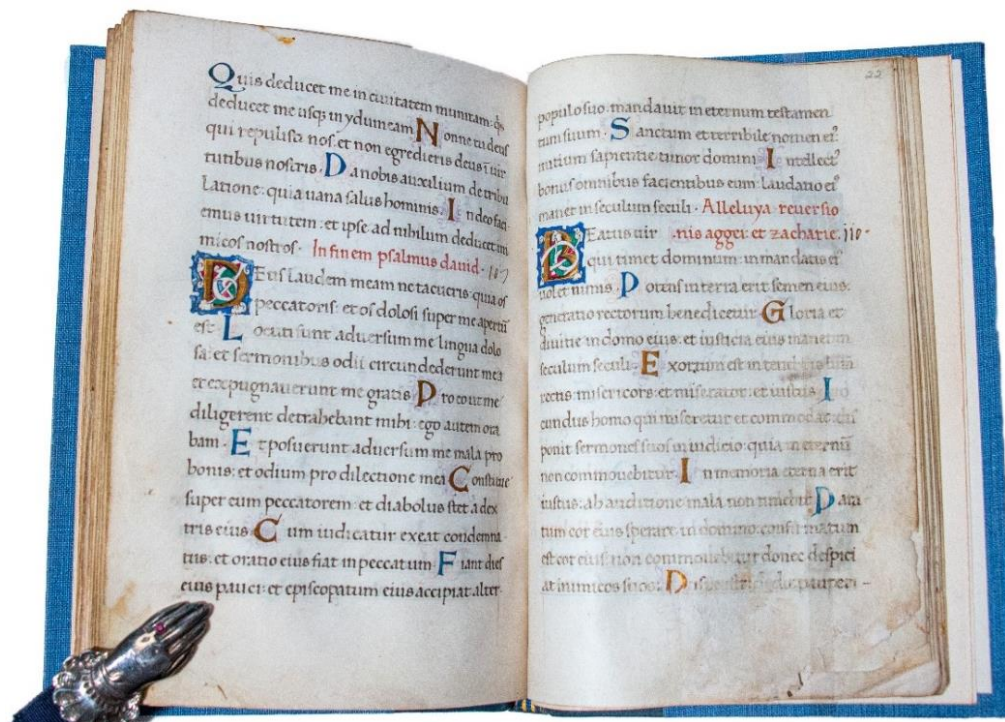 Quis deducet me in ciuitatem munitam: q̄s
deducet me usq; in ydumeam N onne tu deus
qui repulisti nos: et non egredieris deus ī uir
tutibus nostris · D a nobis auxilium de tribu
latione: quia uana salus hominis · I n deo faci
emus uirtutem: et ipse ad nihilum deducet ini
micos nostros · In finem psalmus dauid ·
D Eus laudem meam ne tacueris: quia os
peccatoris: et os dolosi super me apertū
est · L ocuti sunt aduersum me lingua dolo
sa: et sermonibus odii circundederunt me:
et expugnauerunt me gratis P ro eo ut me
diligerent detrahebant mihi: ego autem ora
bam · E t posuerunt aduersum me mala pro
bonis: et odium pro dilectione mea C onstitue
super eum peccatorem: et diabolus stet a dex
tris eius C um iudicatur exeat condemna
tus: et oratio eius fiat in peccatum · F iant dies
eius pauci: et episcopatum eius accipiat alter ·
22
populo suo: mandauit in eternum testamen
tum suum · S anctum et terribile nomen ei⁹
initium sapientie timor domini I ntellect⁹
bonus omnibus facientibus eum: laudatio ei⁹
manet in seculum seculi · Alleluya reuersio
B Eatus uir nis aggei: et zacharie ·
qui timet dominum: in mandatis ei⁹
uolet nimis P otens in terra erit semen eius:
generatio rectorum benedicetur G loria et
diuitie in domo eius: et iusticia eius manet in
seculum seculi E xortum est in
rectis: misericors: et miserator: et iustus I o
cundus homo qui miseretur et commodat:
ponit sermones suos in iudicio: quia in eternū
non commouebitur I n memoria eterna erit
iustus: ab auditione mala non timebit D ara
tum cor eius sperare in domino: confirmatum
est cor eius: non commouebitur donec despici
at inimicos suos: D